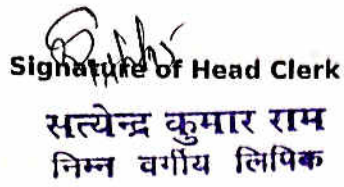 Signature of Head Clerk
सत्येन्द्र कुमार राम
निम्न वर्गीय लिपिक